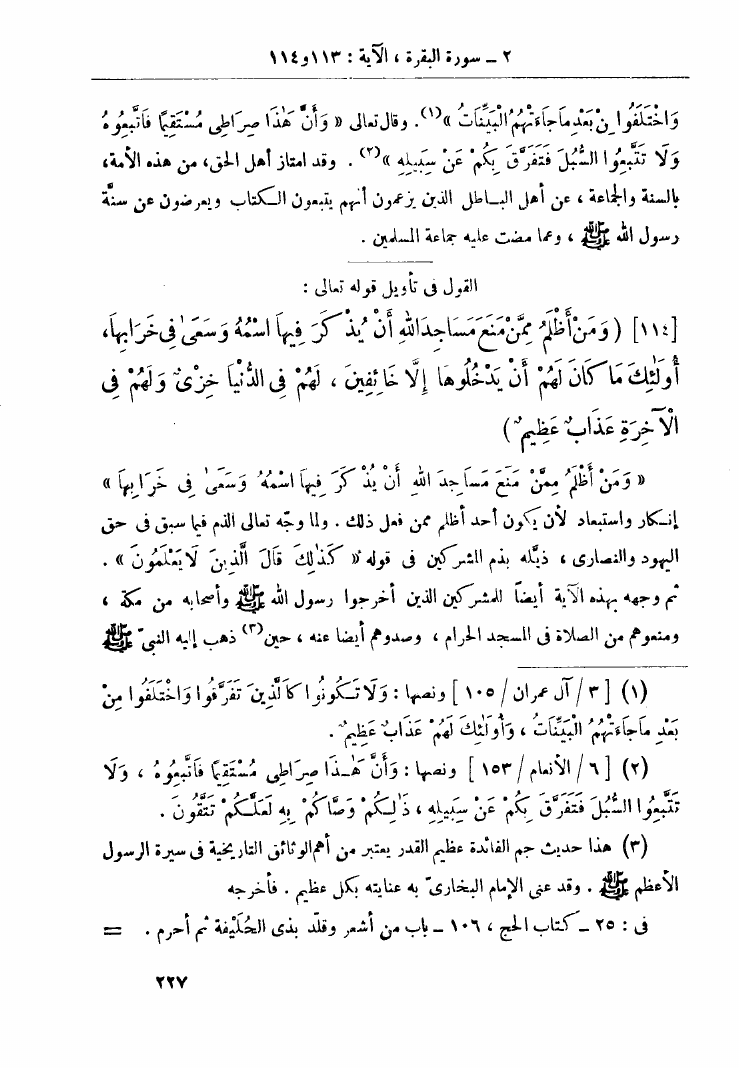 ٢ ـ سورة البقرة ، الآية : ١١٣ و ١١٤
وَاخْتَلَفُوا مِنْ بَعْدِ مَا جَاءَتْهُمُ الْبَيِّنَاتُ »(١). وقال تعالى « وَأَنَّ هَٰذَا صِرَاطِي مُسْتَقِيمًا فَاتَّبِعُوهُ
وَلَا تَتَّبِعُوا السُّبُلَ فَتَفَرَّقَ بِكُمْ عَنْ سَبِيلِهِ »(٢) . وقد امتاز أهل الحق، من هذه الأمة،
بالسنة والجماعة ، عن أهل الباطل الذين يزعمون أنهم يتبعون الكتاب ويعرضون عن سنَّة
رسول الله ﷺ ، وعما مضت عليه جماعة المسلمين .
القول فى تأويل قوله تعالى :
[١١٤] ( وَمَنْ أَظْلَمُ مِمَّنْ مَنَعَ مَسَاجِدَ اللهِ أَنْ يُذْكَرَ فِيهَا اسْمُهُ وَسَعَىٰ فِى خَرَابِهَا،
أُولَٰئِكَ مَا كَانَ لَهُمْ أَنْ يَدْخُلُوهَا إِلَّا خَائِفِينَ ، لَهُمْ فِى الدُّنْيَا خِزْىٌ وَلَهُمْ فِى
الْآخِرَةِ عَذَابٌ عَظِيمٌ )
« وَمَنْ أَظْلَمُ مِمَّنْ مَنَعَ مَسَاجِدَ اللهِ أَنْ يُذْكَرَ فِيهَا اسْمُهُ وَسَعَىٰ فِى خَرَابِهَا »
إنكار واستبعاد لأن يكون أحد أظلم ممن فعل ذلك . ولما وجّه تعالى الذم فيما سبق فى حق
اليهود والنصارى ، ذيَّله بذم المشركين فى قوله « كَذَٰلِكَ قَالَ الَّذِينَ لَا يَعْلَمُونَ » .
ثم وجهه بهذه الآية أيضاً للمشركين الذين أخرجوا رسول الله ﷺ وأصحابه من مكة ،
ومنعوهم من الصلاة فى المسجد الحرام ، وصدوهم أيضا عنه ، حين(٣) ذهب إليه النبىّ ﷺ
(١) [ ٣ / آل عمران / ١٠٥ ] ونصها : وَلَا تَكُونُوا كَالَّذِينَ تَفَرَّقُوا وَاخْتَلَفُوا مِنْ
بَعْدِ مَا جَاءَتْهُمُ الْبَيِّنَاتُ ، وَأُولَٰئِكَ لَهُمْ عَذَابٌ عَظِيمٌ .
(٢) [ ٦ / الأنعام / ١٥٣ ] ونصها : وَأَنَّ هَٰذَا صِرَاطِى مُسْتَقِيمًا فَاتَّبِعُوهُ ، وَلَا
تَتَّبِعُوا السُّبُلَ فَتَفَرَّقَ بِكُمْ عَنْ سَبِيلِهِ ، ذَٰلِكُمْ وَصَّاكُمْ بِهِ لَعَلَّكُمْ تَتَّقُونَ .
(٣) هذا حديث جم الفائدة عظيم القدر يعتبر من أهم الوثائق التاريخية فى سيرة الرسول
الأعظم ﷺ . وقد عنى الإمام البخارىّ به عنايته بكل عظيم . فأخرجه
فى : ٢٥ ـ كتاب الحج ، ١٠٦ ـ باب من أشعر وقلّد بذى الحُلَيْفة ثم أحرم . =
٢٢٧